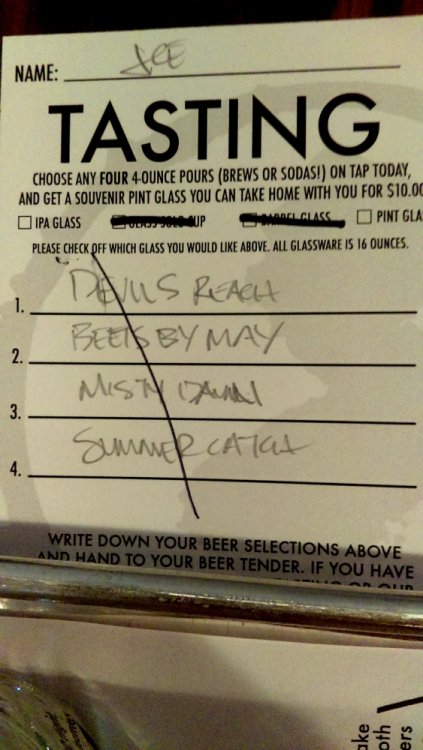 NAME: JOE
TASTING
CHOOSE ANY FOUR 4-OUNCE POURS (BREWS OR SODAS!) ON TAP TODAY,
AND GET A SOUVENIR PINT GLASS YOU CAN TAKE HOME WITH YOU FOR $10.00
IPA GLASS GLASS SOLO CUP BARREL GLASS PINT GLA
PLEASE CHECK OFF WHICH GLASS YOU WOULD LIKE ABOVE. ALL GLASSWARE IS 16 OUNCES.
1. DEVILS REACH
2. BEETS BY MAY
3. MISTY DAWN
4. SUMMER CATCH
WRITE DOWN YOUR BEER SELECTIONS ABOVE
AND HAND TO YOUR BEER TENDER. IF YOU HAVE
ake
oth
ers